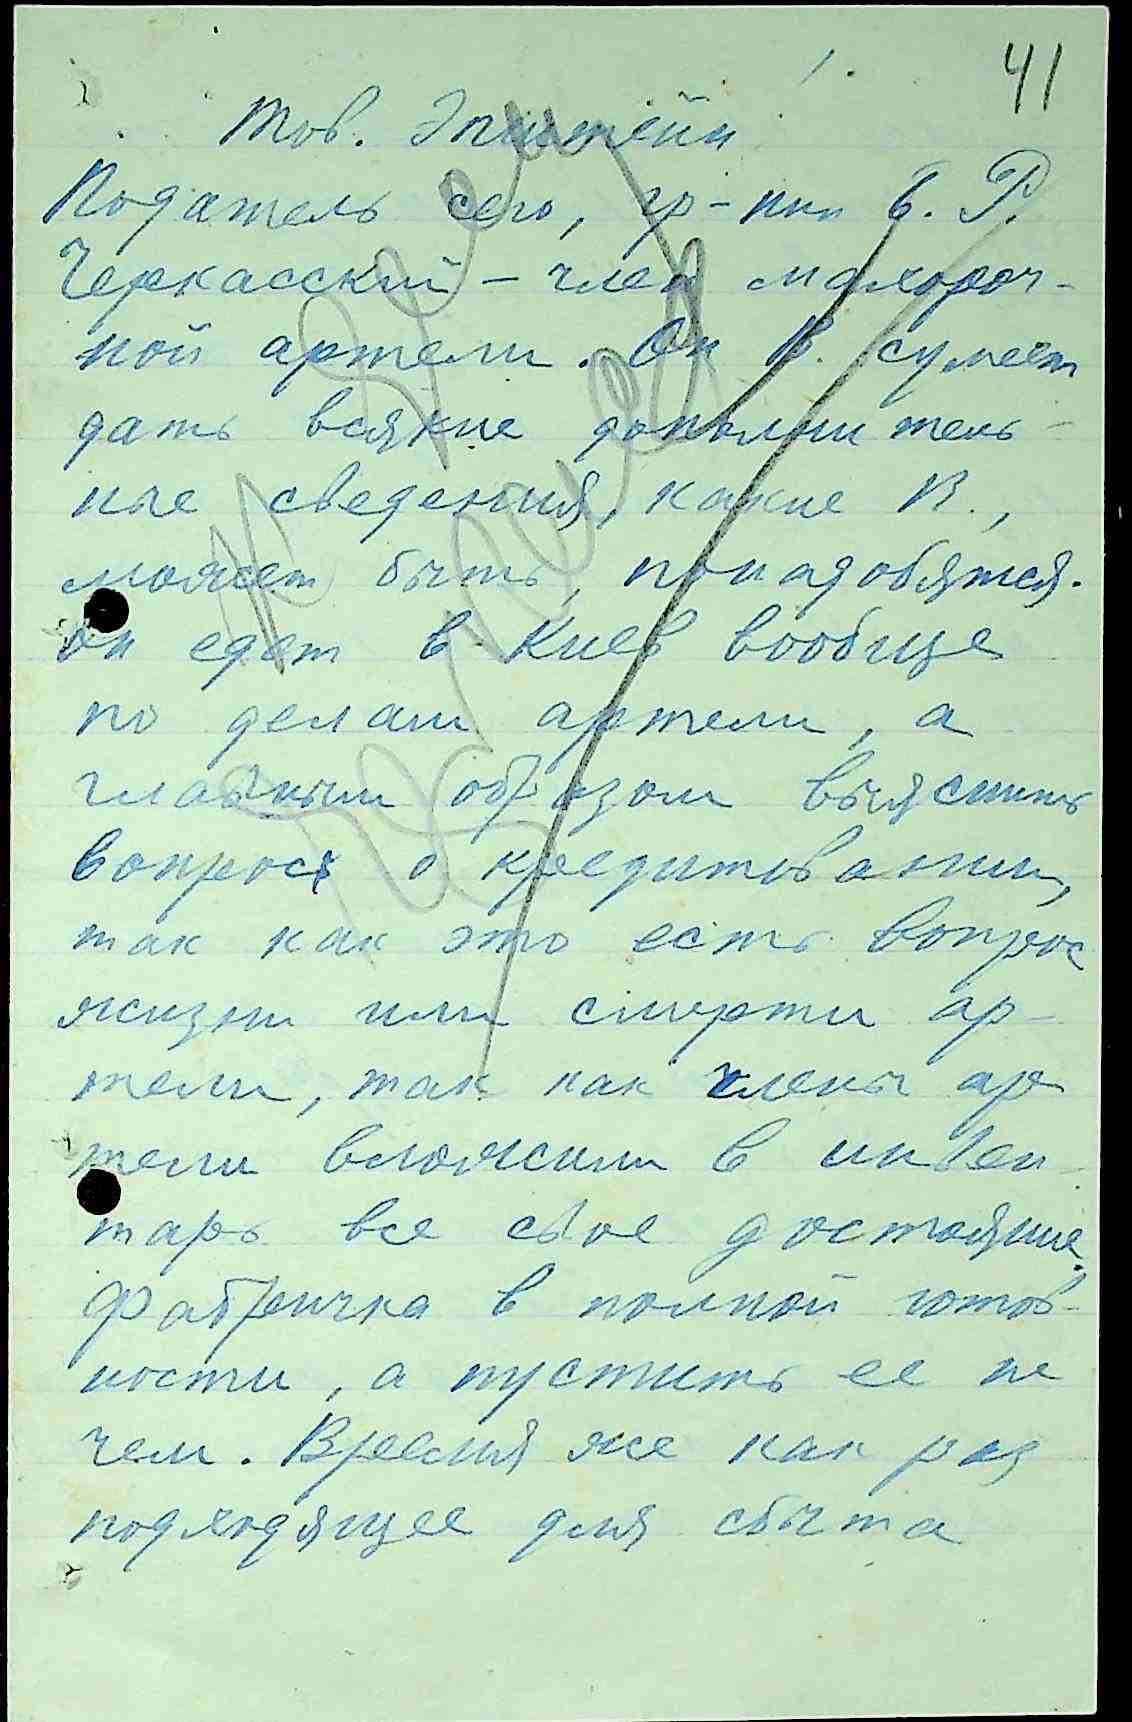 41
Тов. Эпштейн!
Податель сего, гр-нин Б. Р.
Черкасский – член махороч-
ной артели. Он В. сумеет
дать всякие дополнитель-
ные сведения, какие В.,
может быть, понадобятся.
он едет в Киев вообще
по делам артели, а
главным образом выяснить
вопрос о кредитовании,
так как это есть вопрос
жизни или смерти ар-
тели, так как члены ар-
тели вложили в инвен-
тарь все свое достояние,
фабричка в полной готов-
ности, а пустить ее не
чем. Время же как раз
подходящее для сбыта